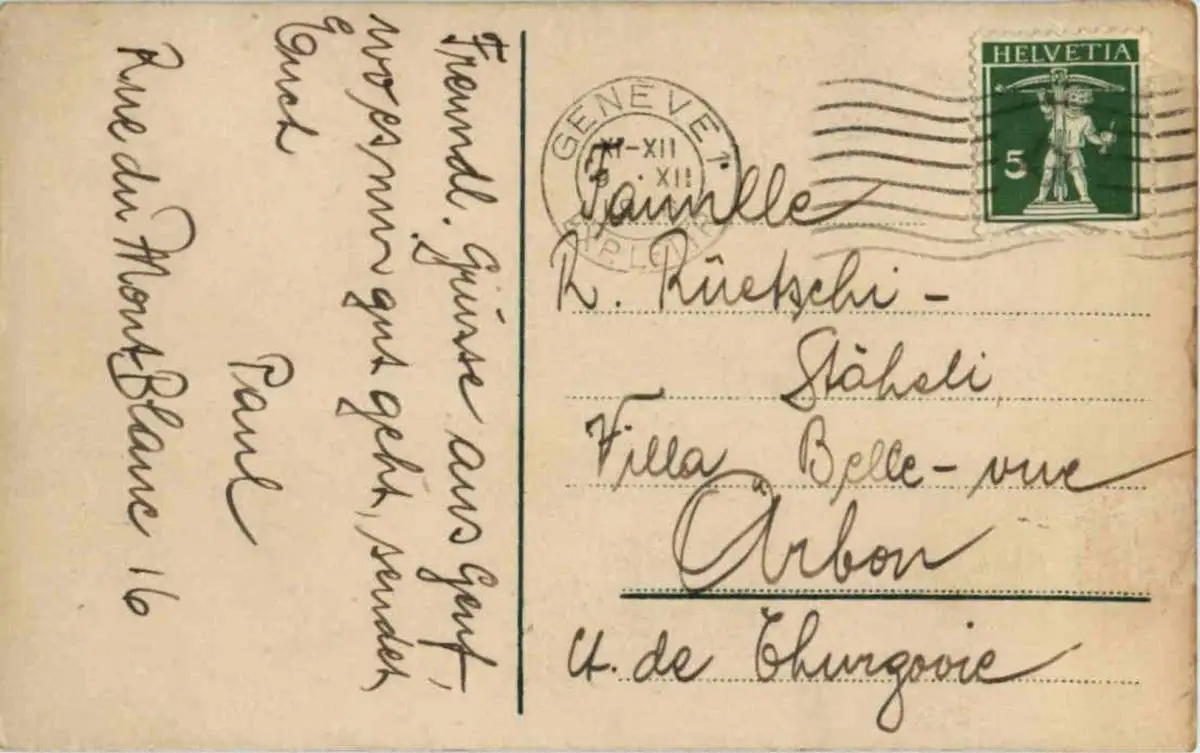 Freundl. Grüsse aus Genf,
wo es mir gut geht, sendet
Euch
Paul
Rue du Mont-Blanc 16
HELVETIA
5
GENEVE 1
XI-XII
XII
Famille
R. Rüetschi-
Stäheli
Villa Belle-vue
Arbon
Ct. de Thurgovie